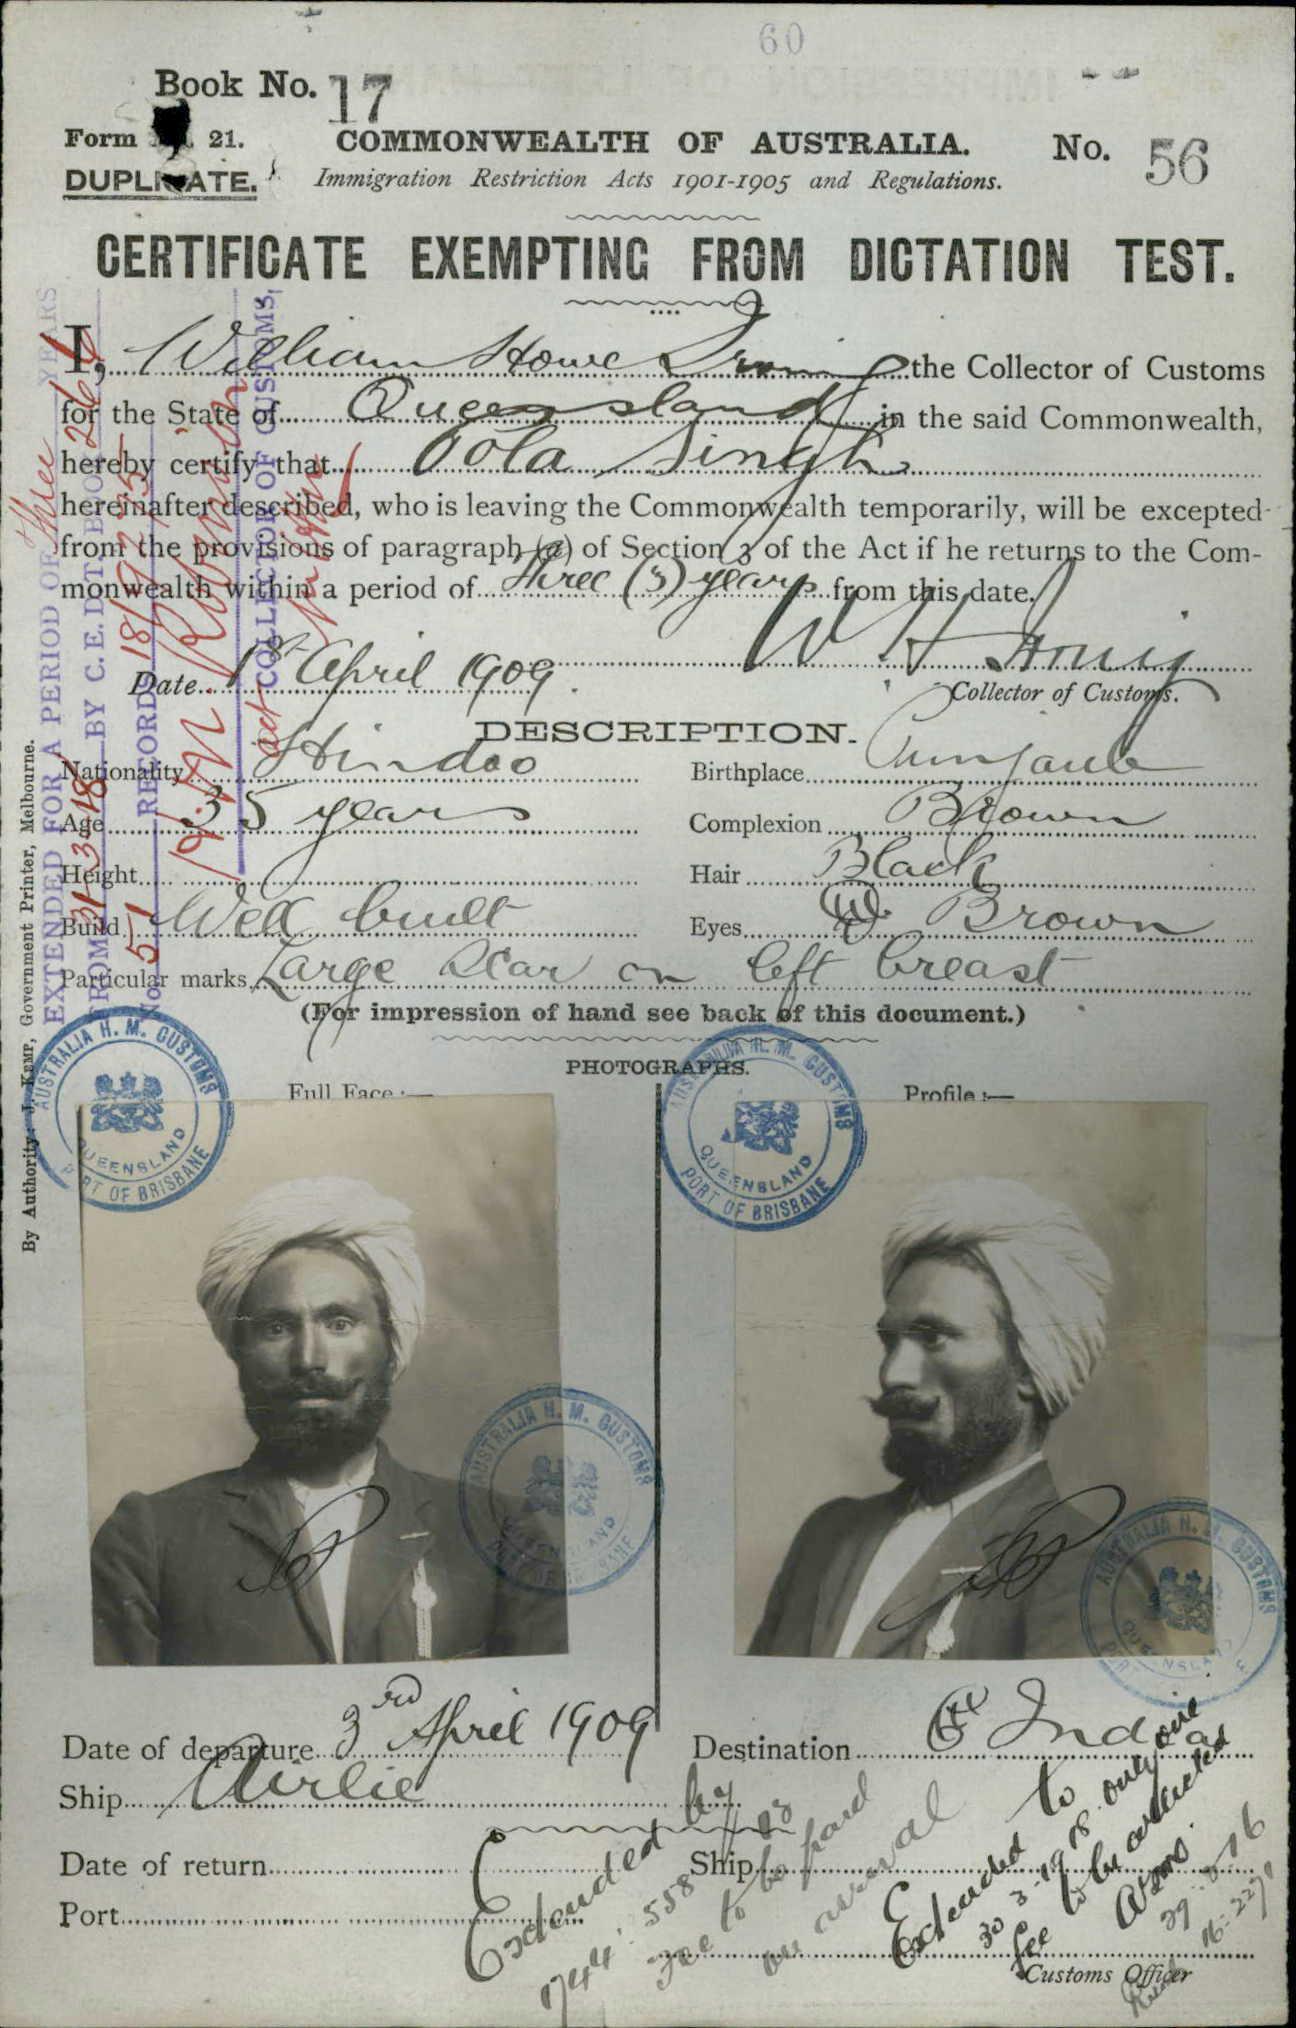 60
Book No. 17
Form 21.
COMMONWEALTH OF AUSTRALIA.
No. 56
DUPLICATE.
Immigration Restriction Acts 1901-1905 and Regulations.
CERTIFICATE EXEMPTING FROM DICTATION TEST.
I, William Howe Irving the Collector of Customs
for the State of Queensland in the said Commonwealth,
hereby certify that Oola Singh
hereinafter described, who is leaving the Commonwealth temporarily, will be excepted
from the provisions of paragraph (a) of Section 3 of the Act if he returns to the Com-
monwealth within a period of three (3) years from this date.
W H Irving
Date 1st April 1909
Collector of Customs.
DESCRIPTION.
Nationality Hindoo
Birthplace Punjaub
Age 35 years
Complexion Brown
Height
Hair Black
Build Well built
Eyes Brown
Particular marks Large Scar on left breast
(For impression of hand see back of this document.)
PHOTOGRAPHS.
Full Face :—
Profile :—
EXTENDED FOR A PERIOD OF three YEARS
FROM 31-3-18 BY C.E.D.T. BOOK 246
No. 51 RECORDS 18/9255
COLLECTOR OF CUSTOMS,
By Authority: J. KEMP, Government Printer, Melbourne.
AUSTRALIA H. M. CUSTOMS
QUEENSLAND
PORT OF BRISBANE
AUSTRALIA H. M. CUSTOMS
QUEENSLAND
PORT OF BRISBANE
AUSTRALIA H. M. CUSTOMS
QUEENSLAND
PORT OF BRISBANE
AUSTRALIA H. M. CUSTOMS
QUEENSLAND
Date of departure 3rd April 1909
Destination India
Ship Airlie
Date of return
Ship
Port
Extended by
Fee to be paid
on arrival
Extended to
30-3-1918 only
fee to be collected
Customs Officer